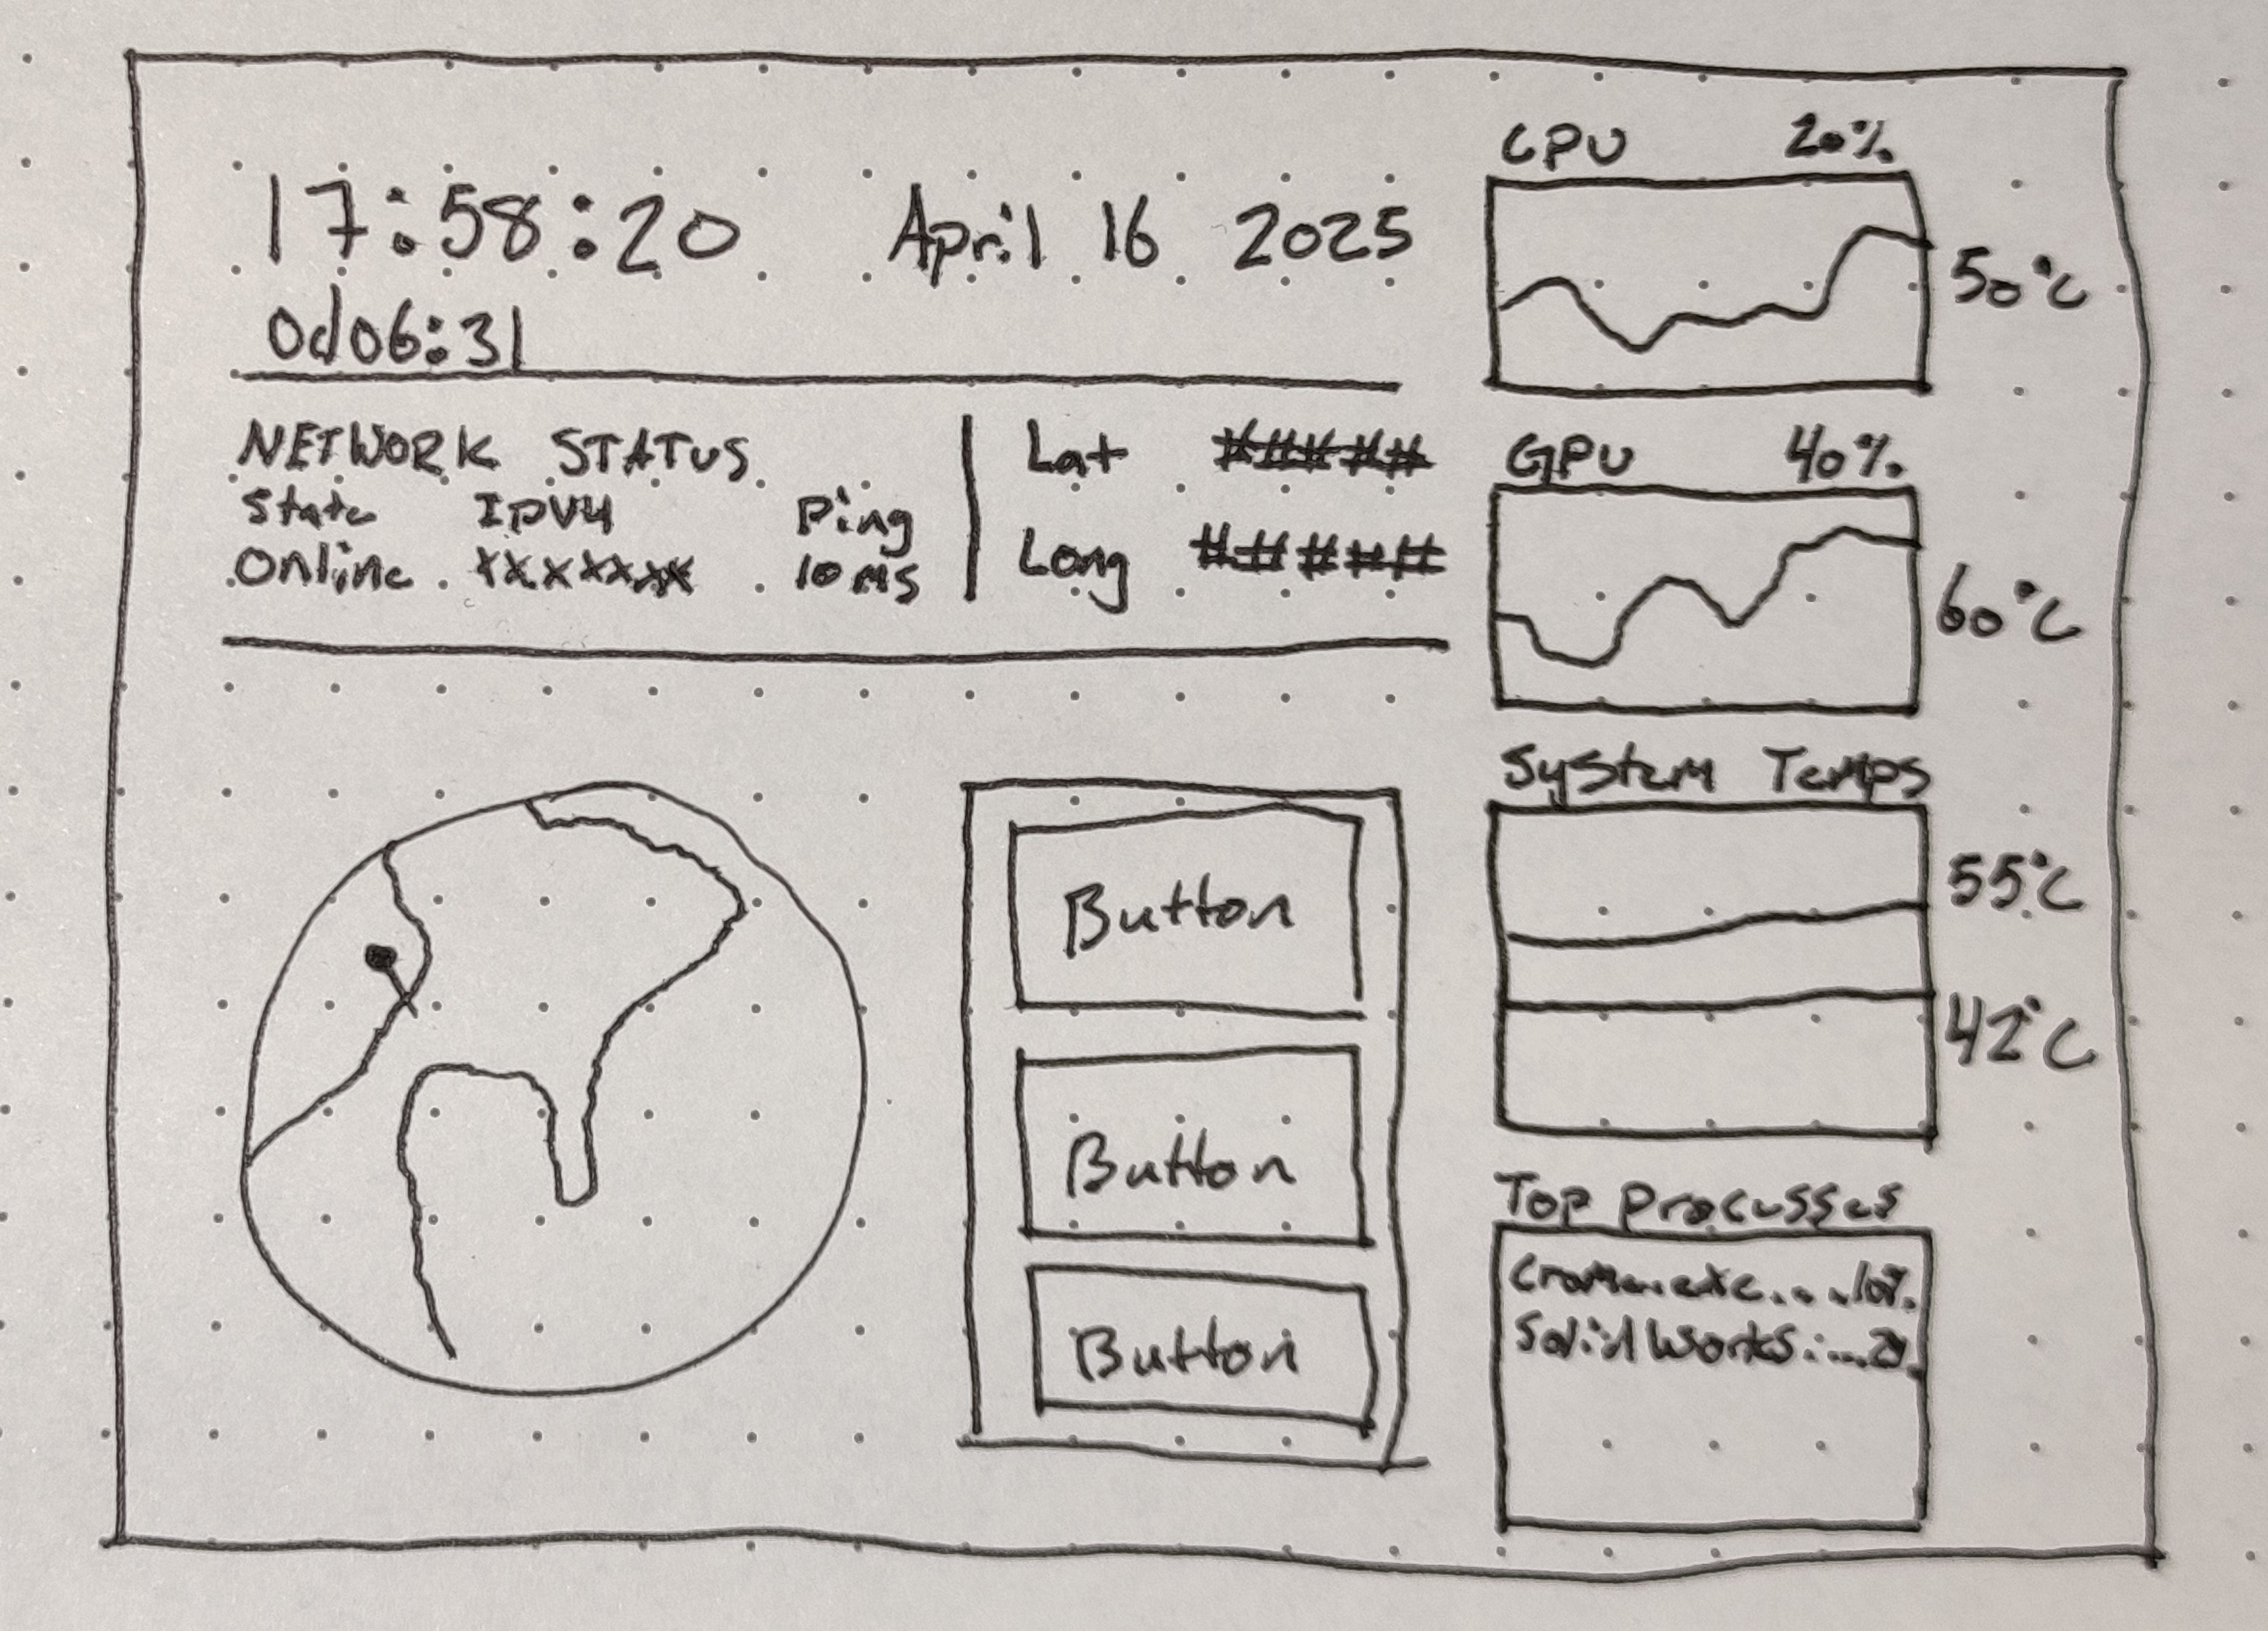 17:58:20 April 16 2025
0d06:31
NETWORK STATUS
State IPV4 Ping
Online xxxxxxx 10ms
Lat #####
Long #####
Button
Button
Button
CPU 20%
50°C
GPU 40%
60°C
System Temps
55°C
42°C
Top Processes
....10%
Solid Works....2%